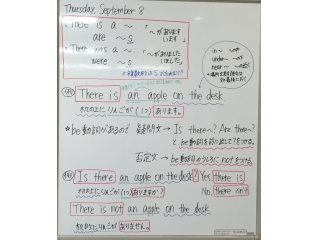 Thursday, September 8
・There is a ～ 「～があります
are ～s います」
・There was a ～ 「～がありました
were ～s いました」
in～
under～
near～
例 There is an apple on the desk
机の上にりんごが(1つ)あります。
*be動詞があるので 疑問文→ Is there～? Are there～?
be動詞を前に出して?をつける。
否定文→ be動詞のうしろにnotをつける。
例 Is there an apple on the desk? Yes, there is
机の上にりんごが(1つ)ありますか? No, there isn't
There is not an apple on the desk
机の上にりんごが ありません。